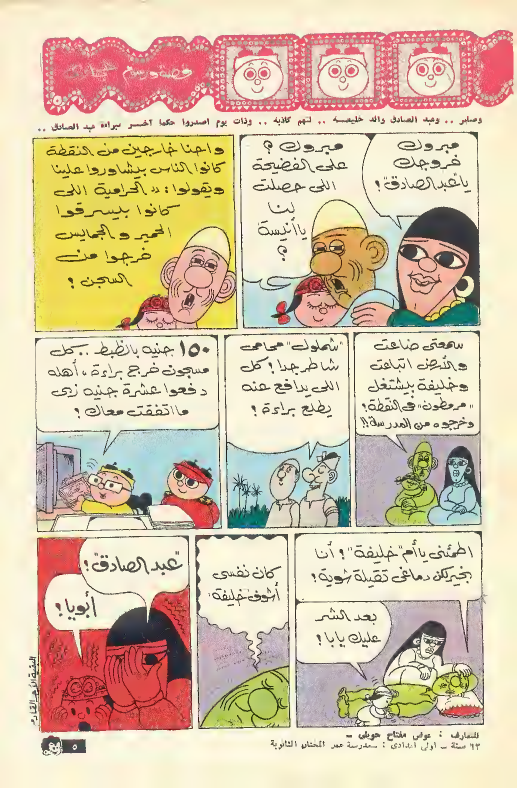 قصة ورسم
وصابر .. وعبد الصادق والد خليفه .. لتهم كاذبة .. وذات يوم اصدروا حكما آخر ببراءة عبد الصادق ..
مبروك
خروجك
يا عبد الصادق !
مبروك ؟
على الفضيحة
اللى حصلت
لنا
يا أنيسة
؟
واحنا خارجين من النقطة
كانوا الناس بيشاوروا علينا
ويقولوا : « الحرامية اللى
كانوا بيسرقوا
الحمير والجمايس
خرجوا من
السجن !
سمعتى ضاعت
والأرض اتباعت
وخليفة بيشتغل
"مرمطون" فى النقطة !
وخرجوه من المدرسة !!
"شملول" محامى
شاطر جدا ! كل
اللى يدافع عنه
يطلع براءة !
١٥٠ جنيه بالظبط .. كل
مسجون خرج براءة ، أهله
دفعوا عشرة جنيه زى
ما اتفقت معاك !
اطمئنى يا أم "خليفة" ! أنا
بخير لكن دماغى تقيلة شوية !
بعد الشر
عليك يابا !
كان نفسى
أشوف خليفة
"عبد الصادق" !
أبويا !
للتعارف : عوض مفتاح حويلى ــ
١٣ سنة ــ اولى اعدادى : مدرسة عمر المختار الثانوية
٥